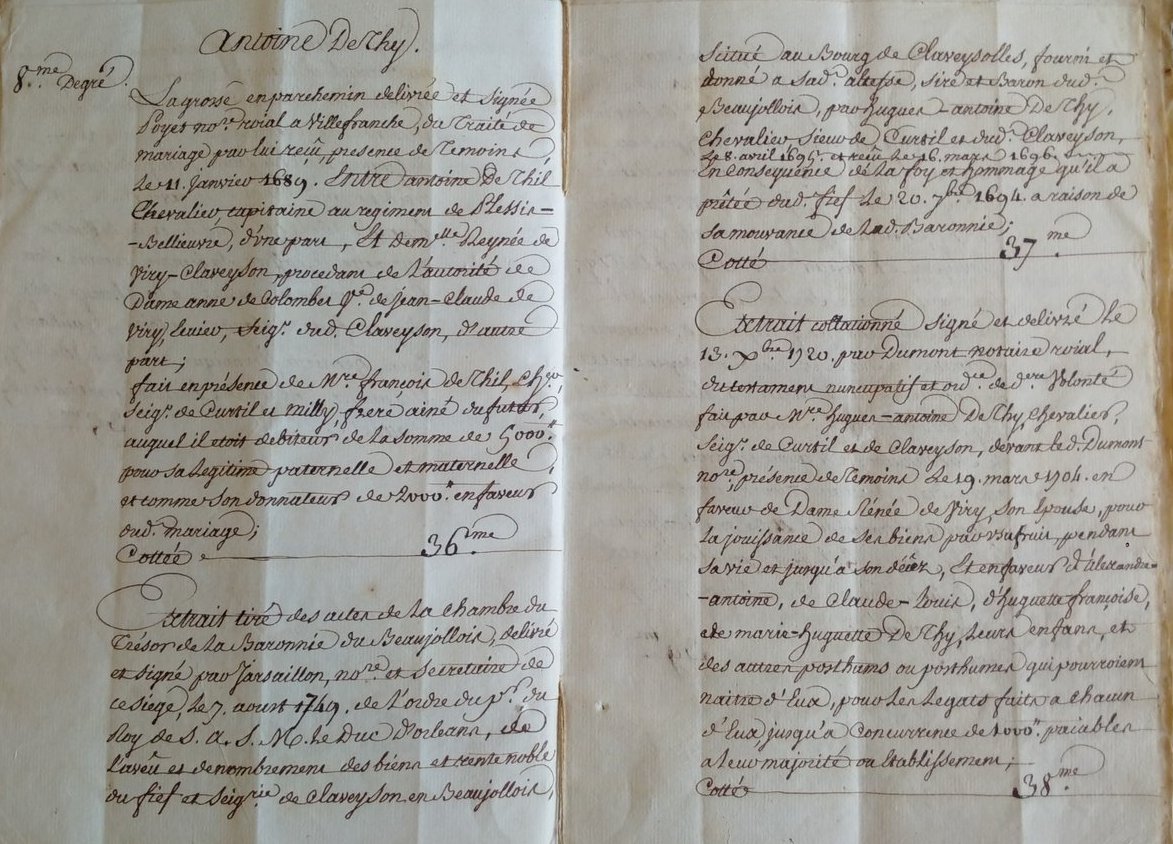 Antoine De Thy.
8.me Degré.
La grosse en parchemin delivrée et signée
Poyet no.re roial a Villefranche, du Traité de
mariage par lui reçû, presence de Temoins,
Le 11. Janvier 1689. Entre antoine De Thil
Chevalier capitaine au regiment de Plessis-
-Bellieuvre, d'vne part, Et dem.lle Reynée de
Viry-Claveyson, procedant de L'autorité de
Dame anne de Colombet V.e de Jean-Claude de
Viry, Ecuier, Seig.r dud. Claveyson, d'autre
part;
fait en présence de M.re francois de Thil, ch.er
Seig.r de Curtil et milly, frere ainé du futur,
auquel il etoit debiteur de la somme de 5000.tt
pour sa Legitime paternelle et maternelle,
et comme son donnateur de 2000.tt en faveur
dud. mariage;
Cottée 36.me
Extrait tiré des actes de La Chambre du
Trésor de La Baronnie du Beaujollois, delivré
et signé par Jarsaillon, no.re et Secretaire de
ce siége, Le 7. aoust 1749. de L'ordre du p.r du
Roy de S. A. S. M. Le Duc D'orleans, de
L'aveû et denombrement des biens et rente noble
du fief et Seig.rie de Claveyson en Beaujollois,
scitué au Bourg de Claveysolles, fourni et
donné a sad.e altesse, Sire et Baron dud.
Beaujollois, par Hugues-antoine De Thy,
Chevalier Sieur de Curtil et dud. Claveyson,
Le 8. avril 1695. et reçû Le 16. mars 1696.
En Consequence de La foy et hommage qu'il a
prêtée dud. fief Le 20. 7.bre 1694. a raison de
sa mouvance de Lad. Baronnie;
Cotté 37.me
Extrait collationné signé et delivré Le
13. X.bre 1720. par Dumont notaire roial,
du testament nuncupatif et ord.ce de d.ere Volonté
fait par M.re Hugues-antoine De Thy, Chevalier,
Seig.r de Curtil et de Claveyson, devant led. Dumont
no.re, présence de Temoins Le 19. mars 1704. en
faveur de Dame Rénée de Viry, son Epouse, pour
La jouissance de ses biens par vsufruit, pendant
sa vie et jusqu'a son décez, Et en faveur d'alexandre-
-antoine, de Claude-Louis, d'huguette françoise,
et de marie-huguette De Thy, Leurs enfans, et
des autres posthums ou posthumes qui pourroient
naitre d'Eux, pour Les Legats faits a chacun
d'Eux jusqu'a Concurrence de 1000.tt paiables
a leur majorité ou Etablissement;
Cotté 38.me